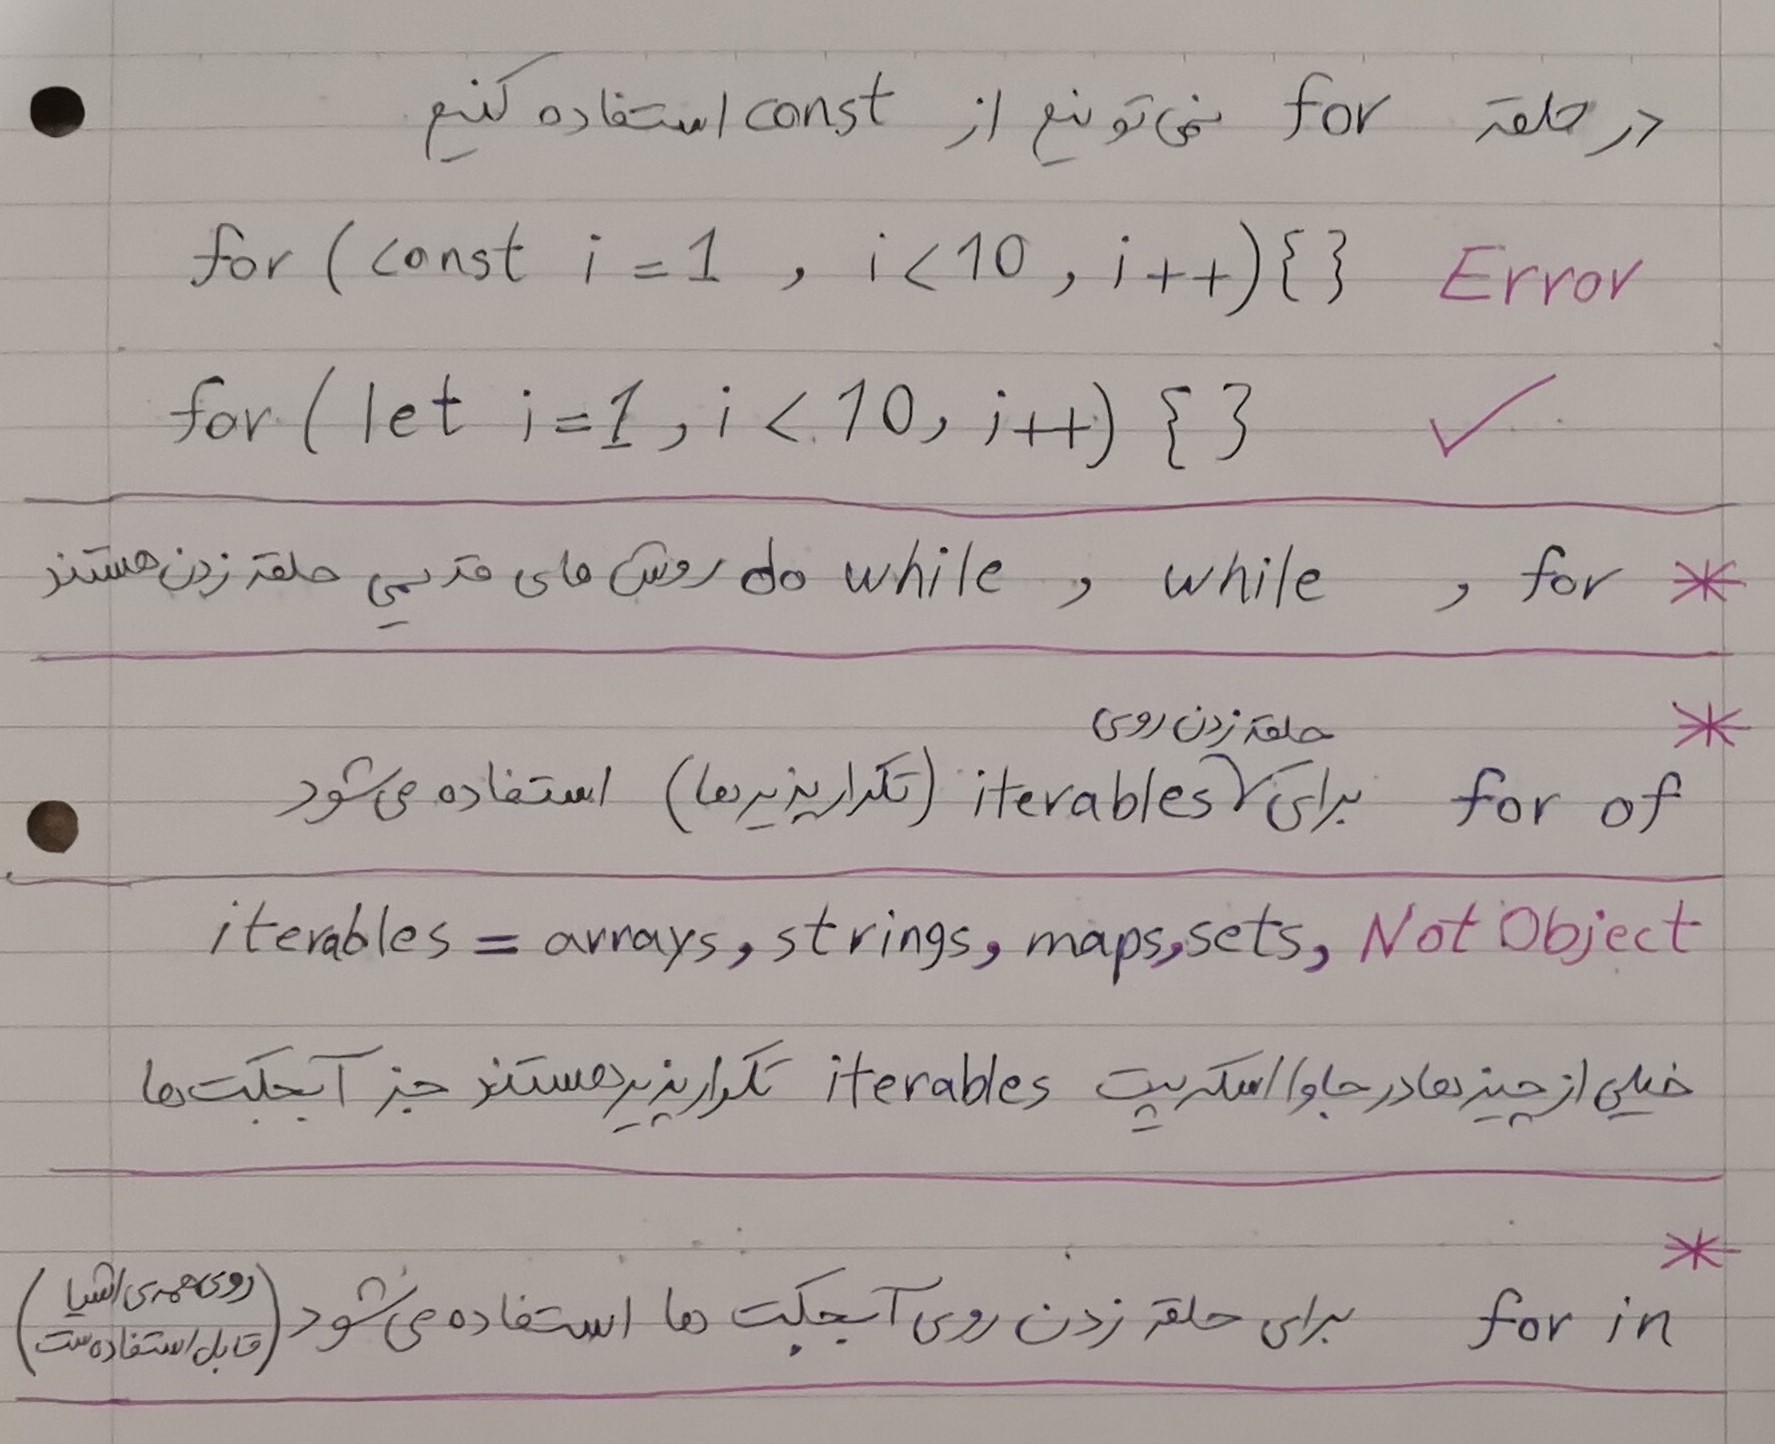 در حلقه for نمی‌تونیم از const استفاده کنیم
for (const i = 1 , i < 10 , i++) { } Error
for ( let i = 1 , i < 10 , i++) { } ✓
* for , while , do while روش های قدیمی حلقه زدن هستند
*
حلقه زدن روی
for of برای iterables (تکرارپذیرها) استفاده می‌شود
iterables = arrays, strings, maps, sets, Not Object
خیلی از چیزها در جاوا اسکریپت iterables تکرارپذیر هستند جز آبجکت‌ها
*
for in برای حلقه زدن روی آبجکت ها استفاده می‌شود (روی همه‌ی اشیا
قابل استفاده ست)